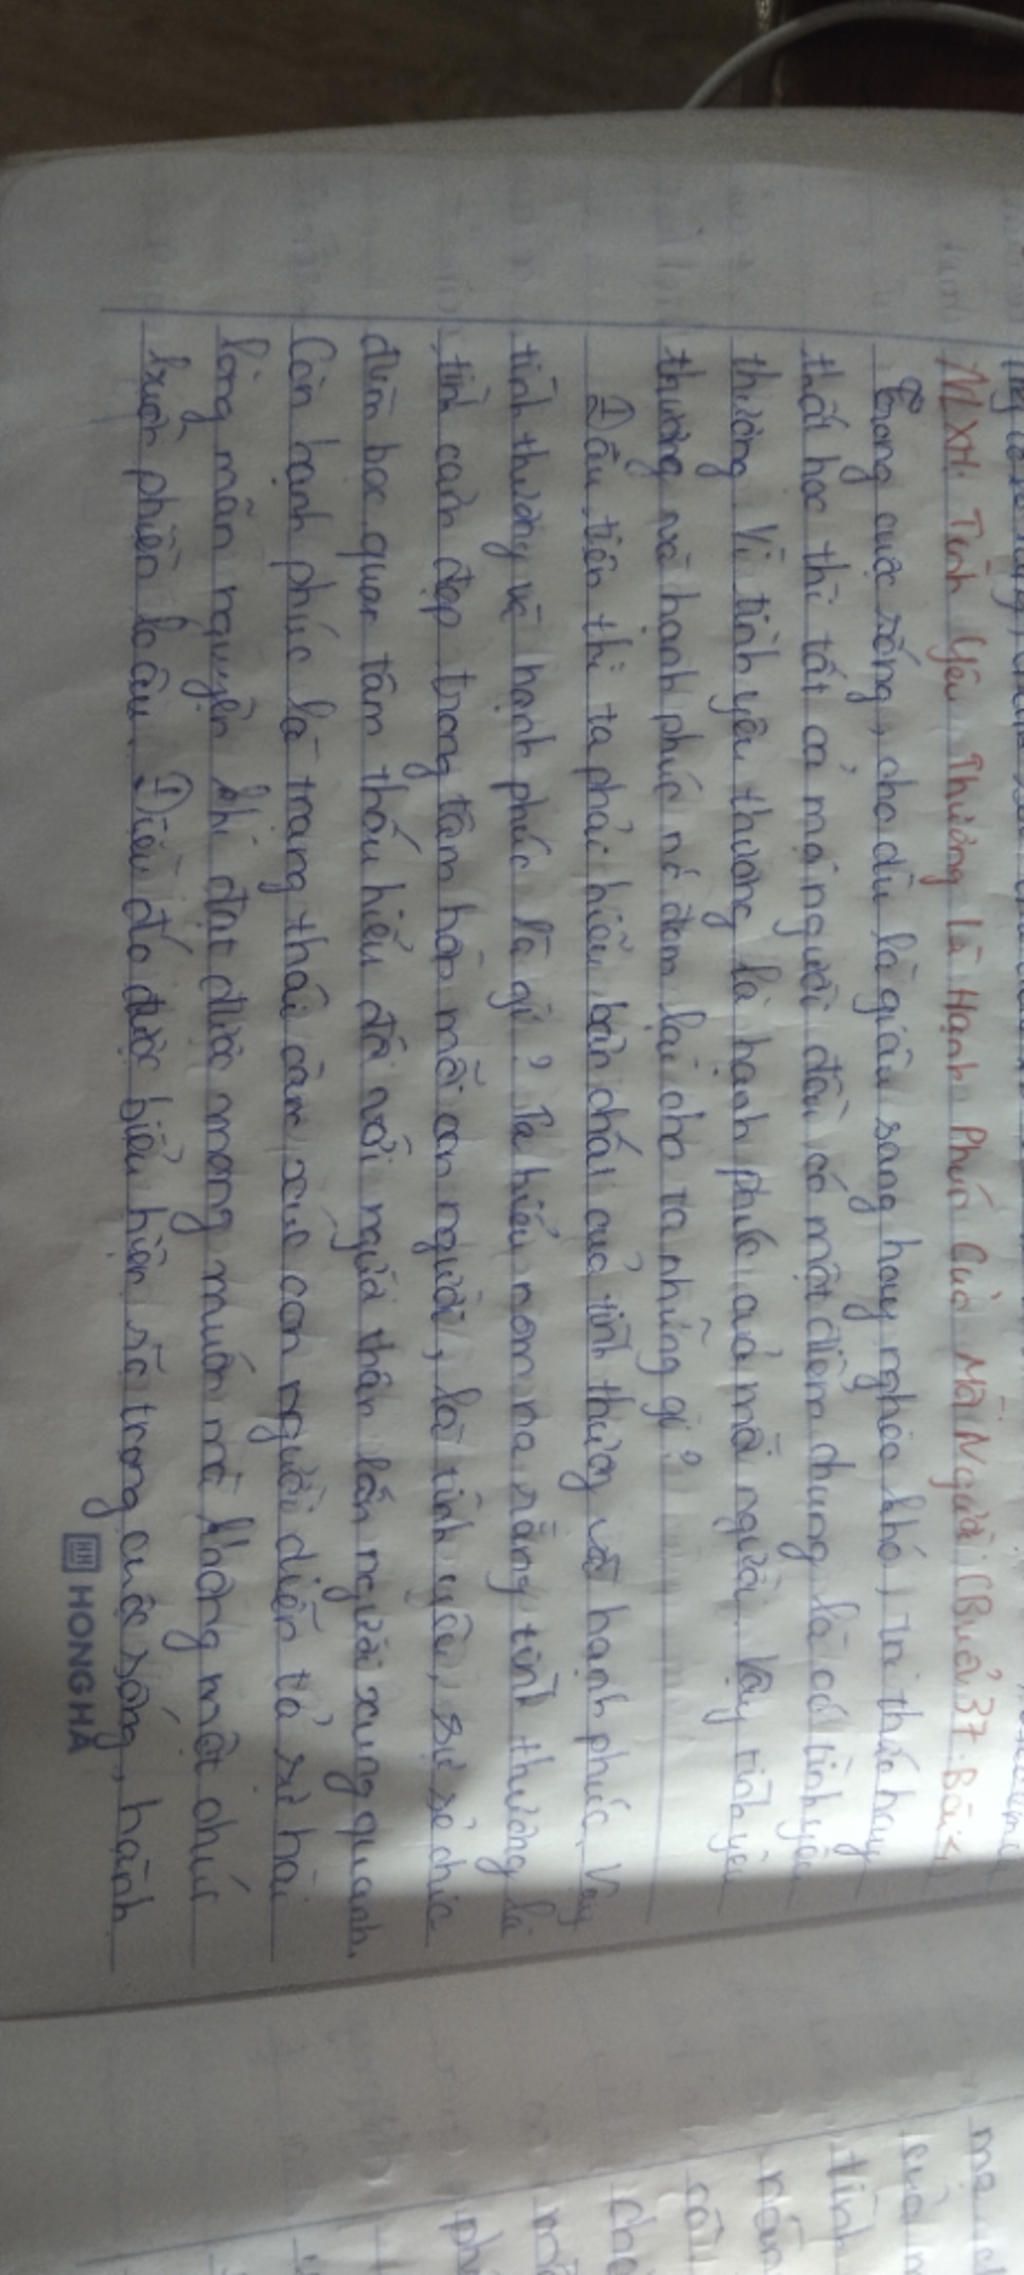 NLXH: Tình Yêu Thương là Hạnh Phúc Của Mỗi Người (Buổi 37. Bài
Trong cuộc sống, cho dù là giàu sang hay nghèo khó, tri thức hay
thất học thì tất cả mọi người đều có một điểm chung là có tình yêu
thương. Vì tình yêu thương là hạnh phúc của mỗi người. Vậy tình yêu
thương và hạnh phúc nó đem lại cho ta những gì?
Đầu tiên thì ta phải hiểu bản chất của tình thương và hạnh phúc. Vậy
tình thương và hạnh phúc là gì? Ta hiểu nôm na rằng tình thương là
tình cảm đẹp trong tâm hồn mỗi con người, là tình yêu, sự sẻ chia
đùm bọc quan tâm thấu hiểu đối với người thân lẫn người xung quanh.
Còn hạnh phúc là trạng thái cảm xúc con người diễn tả sự hài
lòng mãn nguyện khi đạt được mong muốn mà không một chút
buồn phiền lo âu. Điều đó được biểu hiện rõ trong cuộc sống, hành
HONG HA
mẹ
của
tình